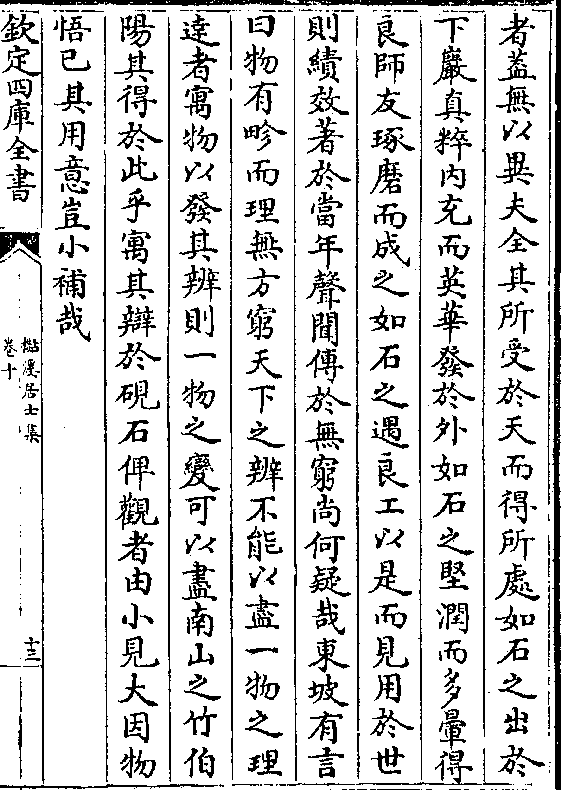 者蓋無以異夫全其所受於天而得所處如石之出於
下巖真粹内充而英華發於外如石之堅潤而多暈得
良師友琢磨而成之如石之遇良工以是而見用於世
則績效著於當年聲聞傳於無窮尚何疑哉東坡有言
曰物有畛而理無方窮天下之辨不能以盡一物之理
達者寓物以發其辨則一物之變可以盡南山之竹伯
陽其得於此乎寓其辯於硯石俾觀者由小見大因物
悟已其用意豈小補哉
欽定四庫全書
檆溪居士集
卷十
十三